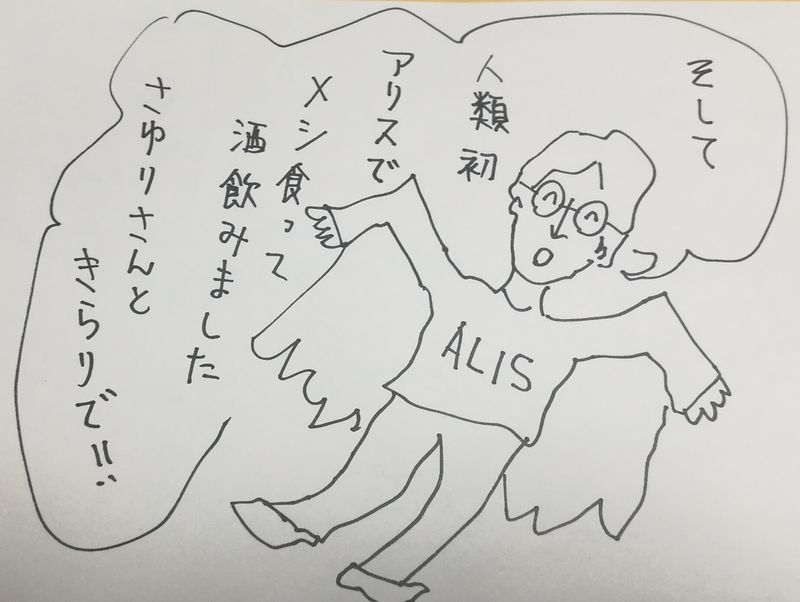 そして
人類初
アリスで
メシ食って
酒飲みました
さゆりさんと
きらりで!!
ALIS